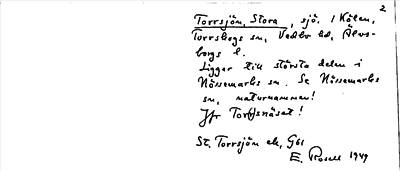 2
Torrsjön, Stora, sjö. i Kölen,
Torrskogs sn, Vedbo hd, Älvs-
borgs l.
Ligger till största delen i
Nössemarks sn. Se Nössemarks
sn, naturnamnen!
Jfr Tor(r)snäsat!
St. Torrsjön ek, G61
E. Rosell 1949